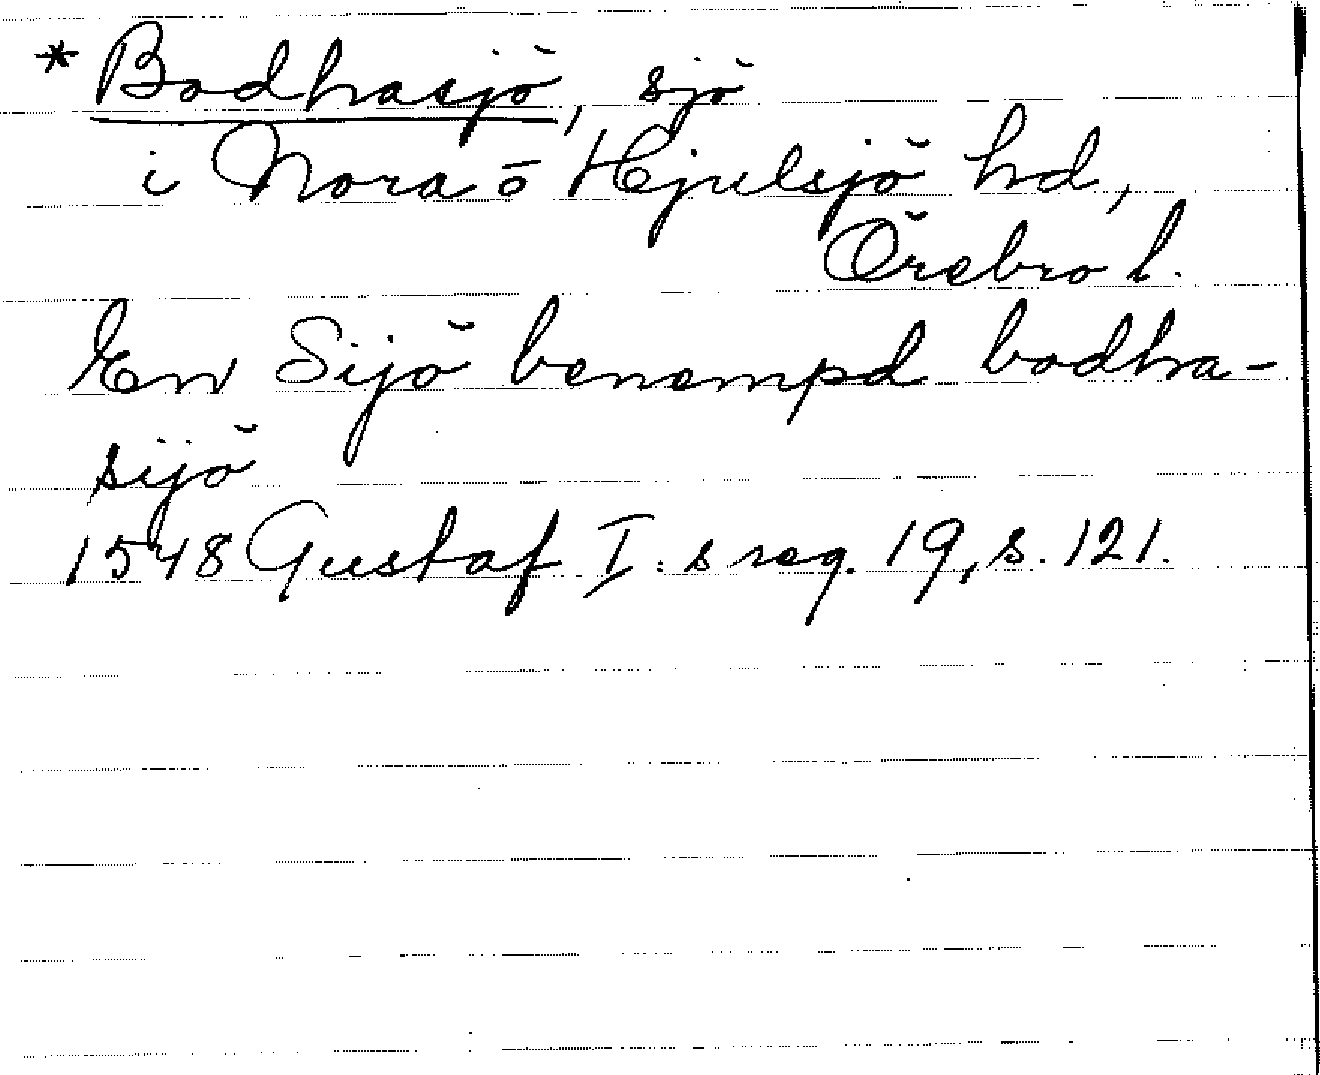 * Bodhasjö, sjö
i Nora o Hjulsjö hd,
Örebro l.
En Sijö benempd bodha-
sijö
1548 Gustaf I:s reg. 19, s. 121.